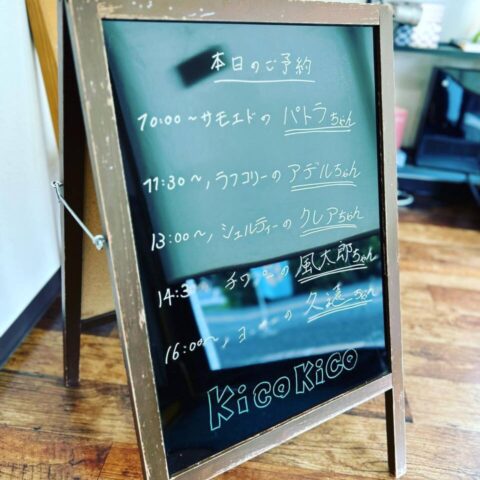 本日のご予約
10:00〜サモエドの パトラちゃん
11:30〜,ラフコリーの アデルちゃん
13:00〜,シェルティーの クレアちゃん
14:3 チワワの 風太郎ちゃん
16:00〜,ヨ の ちゃん
KicoKico